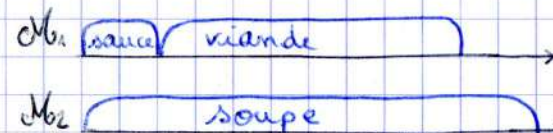 M1 sauce viande
M2 soupe